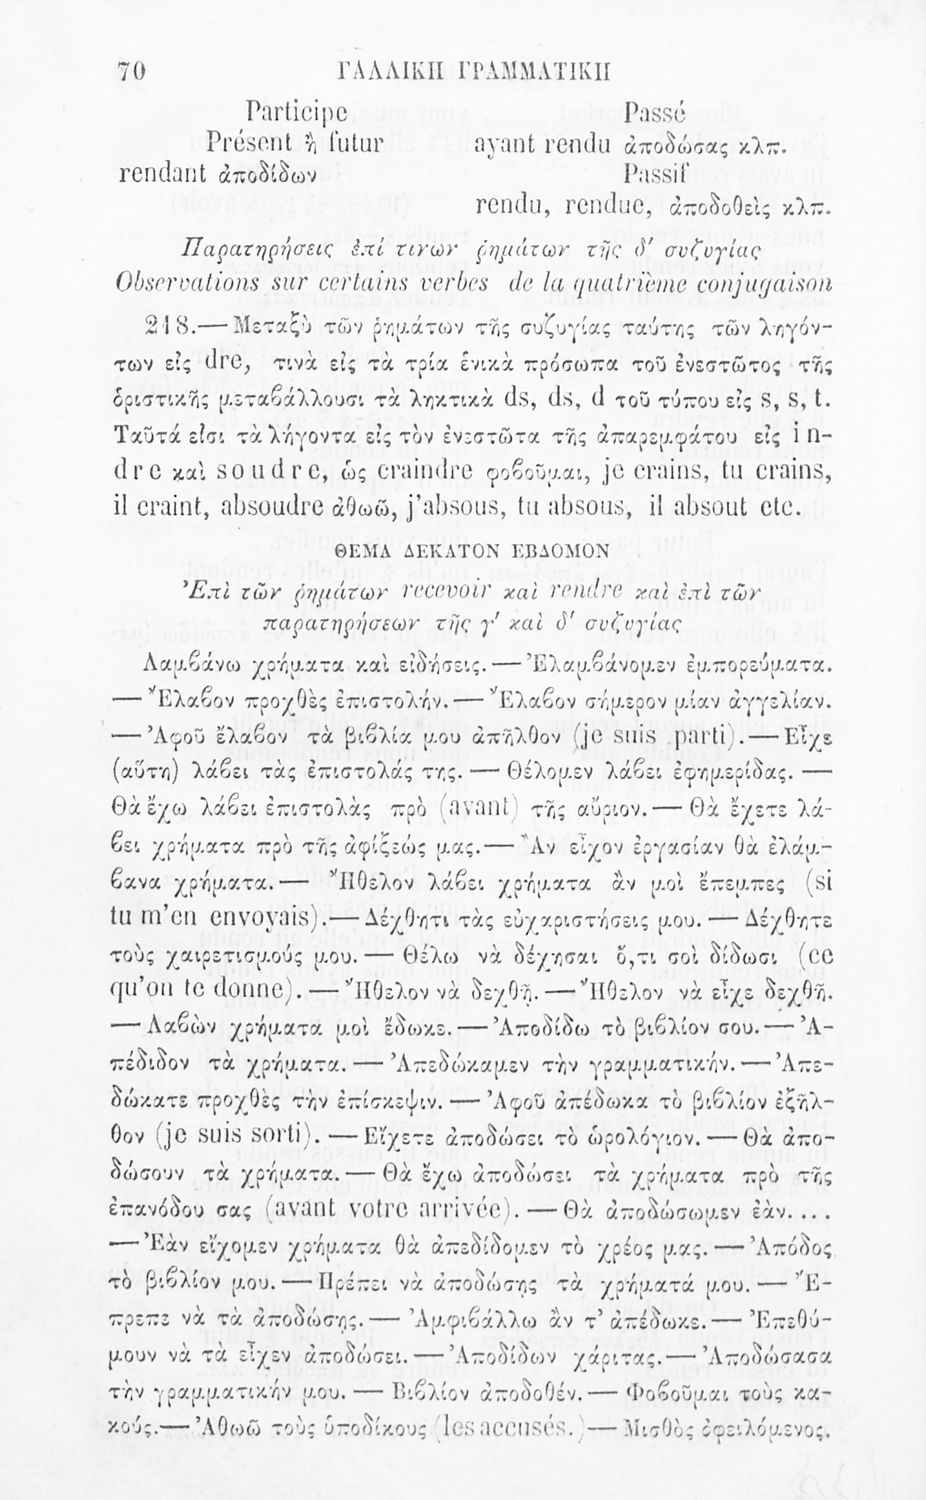 70 ΓΑΛΛΙΚΗ ΓΡΑΜΜΑΤΙΚΗ
Participe Passé
Présent ἢ futur ayant rendu ἀποδώσας κλπ.
rendant ἀποδίδων Passif
rendu, rendue, ἀποδοθεὶς κλπ.
Παρατηρήσεις ἐπί τινων ῥημάτων τῆς δ′ συζυγίας
Observations sur certains verbes de la quatrième conjugaison
218.— Μεταξὺ τῶν ῥημάτων τῆς συζυγίας ταύτης τῶν ληγόν-
των εἰς dre, τινὰ εἰς τὰ τρία ἑνικὰ πρόσωπα τοῦ ἐνεστῶτος τῆς
ὁριστικῆς μεταβάλλουσι τὰ ληκτικὰ ds, ds, d τοῦ τύπου εἰς s, s, t.
Ταῦτά εἰσι τὰ λήγοντα εἰς τὸν ἐνεστῶτα τῆς ἀπαρεμφάτου εἰς in-
dre καὶ soudre, ὡς craindre φοβοῦμαι, je crains, tu crains,
il craint, absoudre ἀθωῶ, j'absous, tu absous, il absout etc.
ΘΕΜΑ ΔΕΚΑΤΟΝ ΕΒΔΟΜΟΝ
Ἐπὶ τῶν ῥημάτων recevoir καὶ rendre καὶ ἐπὶ τῶν
παρατηρήσεων τῆς γ′ καὶ δ′ συζυγίας
Λαμβάνω χρήματα καὶ εἰδήσεις.— Ἐλαμβάνομεν ἐμπορεύματα.
— Ἔλαβον προχθὲς ἐπιστολήν.— Ἔλαβον σήμερον μίαν ἀγγελίαν.
— Ἀφοῦ ἔλαβον τὰ βιβλία μου ἀπῆλθον (je suis parti).— Εἶχε
(αὕτη) λάβει τὰς ἐπιστολάς της. — Θέλομεν λάβει ἐφημερίδας. —
Θὰ ἔχω λάβει ἐπιστολὰς πρὸ (avant) τῆς αὔριον.— Θὰ ἔχετε λά-
βει χρήματα πρὸ τῆς ἀφίξεώς μας.— Ἂν εἶχον ἐργασίαν θὰ ἐλάμ-
βανα χρήματα.— Ἤθελον λάβει χρήματα ἂν μοὶ ἔπεμπες (si
tu m'en envoyais).— Δέχθητι τὰς εὐχαριστήσεις μου. — Δέχθητε
τοὺς χαιρετισμούς μου.— Θέλω νὰ δέχησαι ὅ,τι σοὶ δίδωσι (ce
qu'on te donne). — Ἤθελον νὰ δεχθῇ. — Ἤθελον νὰ εἶχε δεχθῆ.
— Λαβὼν χρήματα μοὶ ἔδωκε.— Ἀποδίδω τὸ βιβλίον σου.— Ἀ-
πέδιδον τὰ χρήματα.— Ἀπεδώκαμεν τὴν γραμματικήν.— Ἀπε-
δώκατε προχθὲς τὴν ἐπίσκεψιν. — Ἀφοῦ ἀπέδωκα τὸ βιβλίον ἐξῆλ-
θον (je suis sorti). — Εἴχετε ἀποδώσει τὸ ὡρολόγιον.— Θὰ ἀπο-
δώσουν τὰ χρήματα.— Θὰ ἔχω ἀποδώσει τὰ χρήματα πρὸ τῆς
ἐπανόδου σας (avant votre arrivée). — Θὰ ἀποδώσωμεν ἐὰν....
— Ἐὰν εἴχομεν χρήματα θὰ ἀπεδίδομεν τὸ χρέος μας.— Ἀπόδος
τὸ βιβλίον μου.— Πρέπει νὰ ἀποδώσῃς τὰ χρήματά μου.— Ἔ-
πρεπε νὰ τὰ ἀποδώσῃς.— Ἀμφιβάλλω ἂν τ' ἀπέδωκε.— Ἐπεθύ-
μουν νὰ τὰ εἶχεν ἀποδώσει.— Ἀποδίδων χάριτας.— Ἀποδώσασα
τὴν γραμματικήν μου. — Βιβλίον ἀποδοθέν.— Φοβοῦμαι τοὺς κα-
κούς.— Ἀθωῶ τοὺς ὑποδίκους (les accusés.)— Μισθὸς ὀφειλόμενος.